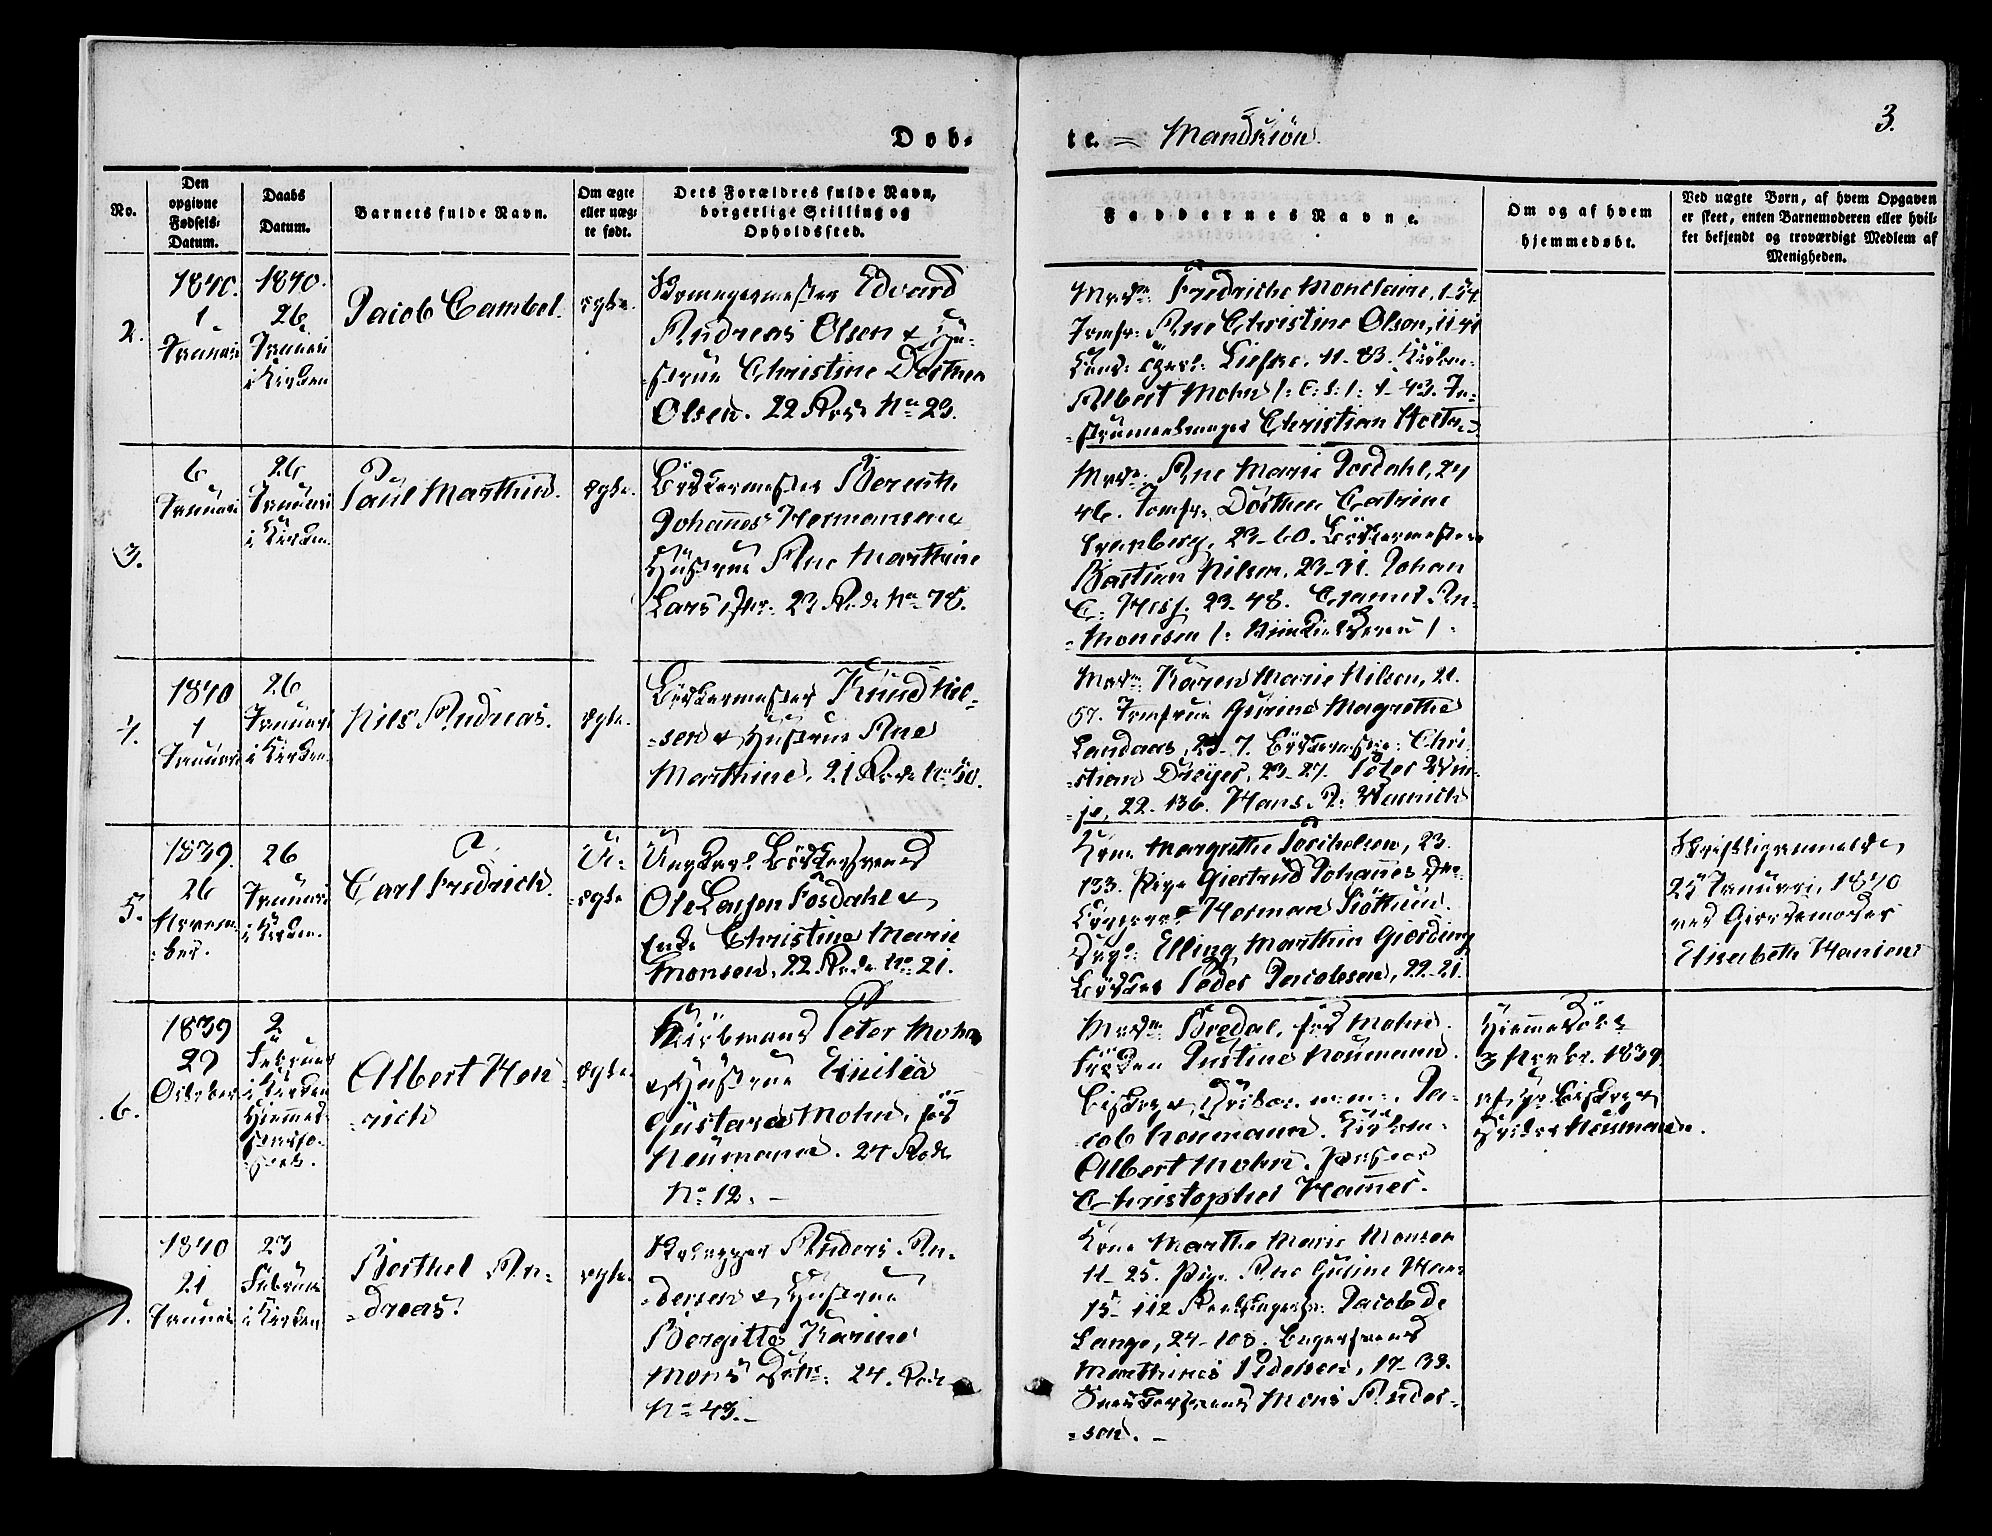 3.
Døb-
te. = Mandkiøn.
No.
Den
opgivne
Fødsels-
Datum.
Daabs
Datum.
Barnets fulde Navn.
Om ægte
eller uæg-
te født.
Dets Forældres fulde Navn,
borgerlige Stilling og
Opholdssted.
Faddernes Navne.
Om og af hvem
hjemmedøbt.
Ved uægte Børn, af hvem Opgaven
er skeet, enten Barnemoderen eller hvil-
ket bekjendt og troværdigt Medlem af
Menigheden.
2.
1840.
1
Januari
1840.
26
Januari
i Kirken
Jacob Cambel.
ægte.
Edvard
Andreas Olsen & Hu-
strue Christine Dorthea
Olsen. 22 Rode No 23.
Mad: Fredriche Monclaire, 1-54.
Jomfr: Ane Christine Olson, 11-41
11-83. Kiøbm:
Albert Mohn /: C: S: /: 1-43. In-
-strumentmager Christian Holtm
3.
6
Januari
26
Januari
i Kirken.
Paul Marthin.
ægte.
Bødkermester Berenth
Johannes Hermansen &
Hustrue Ane Marthine
Larsdtr: 23 Rode No 78.
Mad: Ane Marie Fosdahl, 24
46. Jomfr: Dorthea Catrine
23-60. Bødkermester
Bastian Nilsen, 23-31. Johan
C: Hess. 23-48. An-
-monisen
4.
1840
1
Januari
26
Januari
i Kirken
Nils Andreas.
ægte.
Bødkermester Knud Niel-
-sen & Hustrue Ane
Marthine, 21 Rode No 50.
Mad: Karen Marie Nilsen, 21.
57. Jomfrue Gurine Magrethe
Landaas, 23-7. Bødkermester: Chri
-stian Dreyer, 23-27. Peter
22-136. Hans
5.
1839.
26
Novem-
-ber.
26
Januari
i Kirken.
Carl Fredrich.
U-
-ægte
Ungkarl Bødkersvend
Ole Larsen Fosdahl &
Christine Marie
Monsen, 22 Rode No 21.
Kone Margrethe Torchelsen, 23.
133. Pige Giertrud Johannes
Herman
Elling Marthin Giørding
Bødker Peder Jacobsen, 22-21.
Skriftlig anmeldt
25 Januari, 1840
ved Giordemoder
Elisabeth Hansen
6.
1839
29
October
2
Februar
i Kirken
Hiemmed:
Albert Hen
-rich
ægte.
Kiøbmand Peter Mohn
& Hustrue Emilia
Gustava Mohn, fød
Neumann. 24 Rode
No 12. -
Mad: Bredal, fød Mohn.
Frøken Justine Neumann.
Biskop Ja-
cob Neumann. Kiøbm:
Albert Mohn. Pastor
Christopher Hammer.
Hiemmedøbt
3 Novbr. 1839
af Hr: Biskop
Neumann.
7.
1840
21
Januar
23
Februar
i Kirken
Berthel An-
-dreas.
ægte.
Anders An-
-dersen & Hustrue
Bergitte Karine
Mons Datr: 24. Rode
No 43. -
Kone Marthe Marie Monsen
11-25. Pige Ane Guline Han
15-112 Jacob de
Lange, 24-108. Bagersvend
Marthinus Pedersen, 17-39.
Snedkersvend Mons Ander-
-sen. -